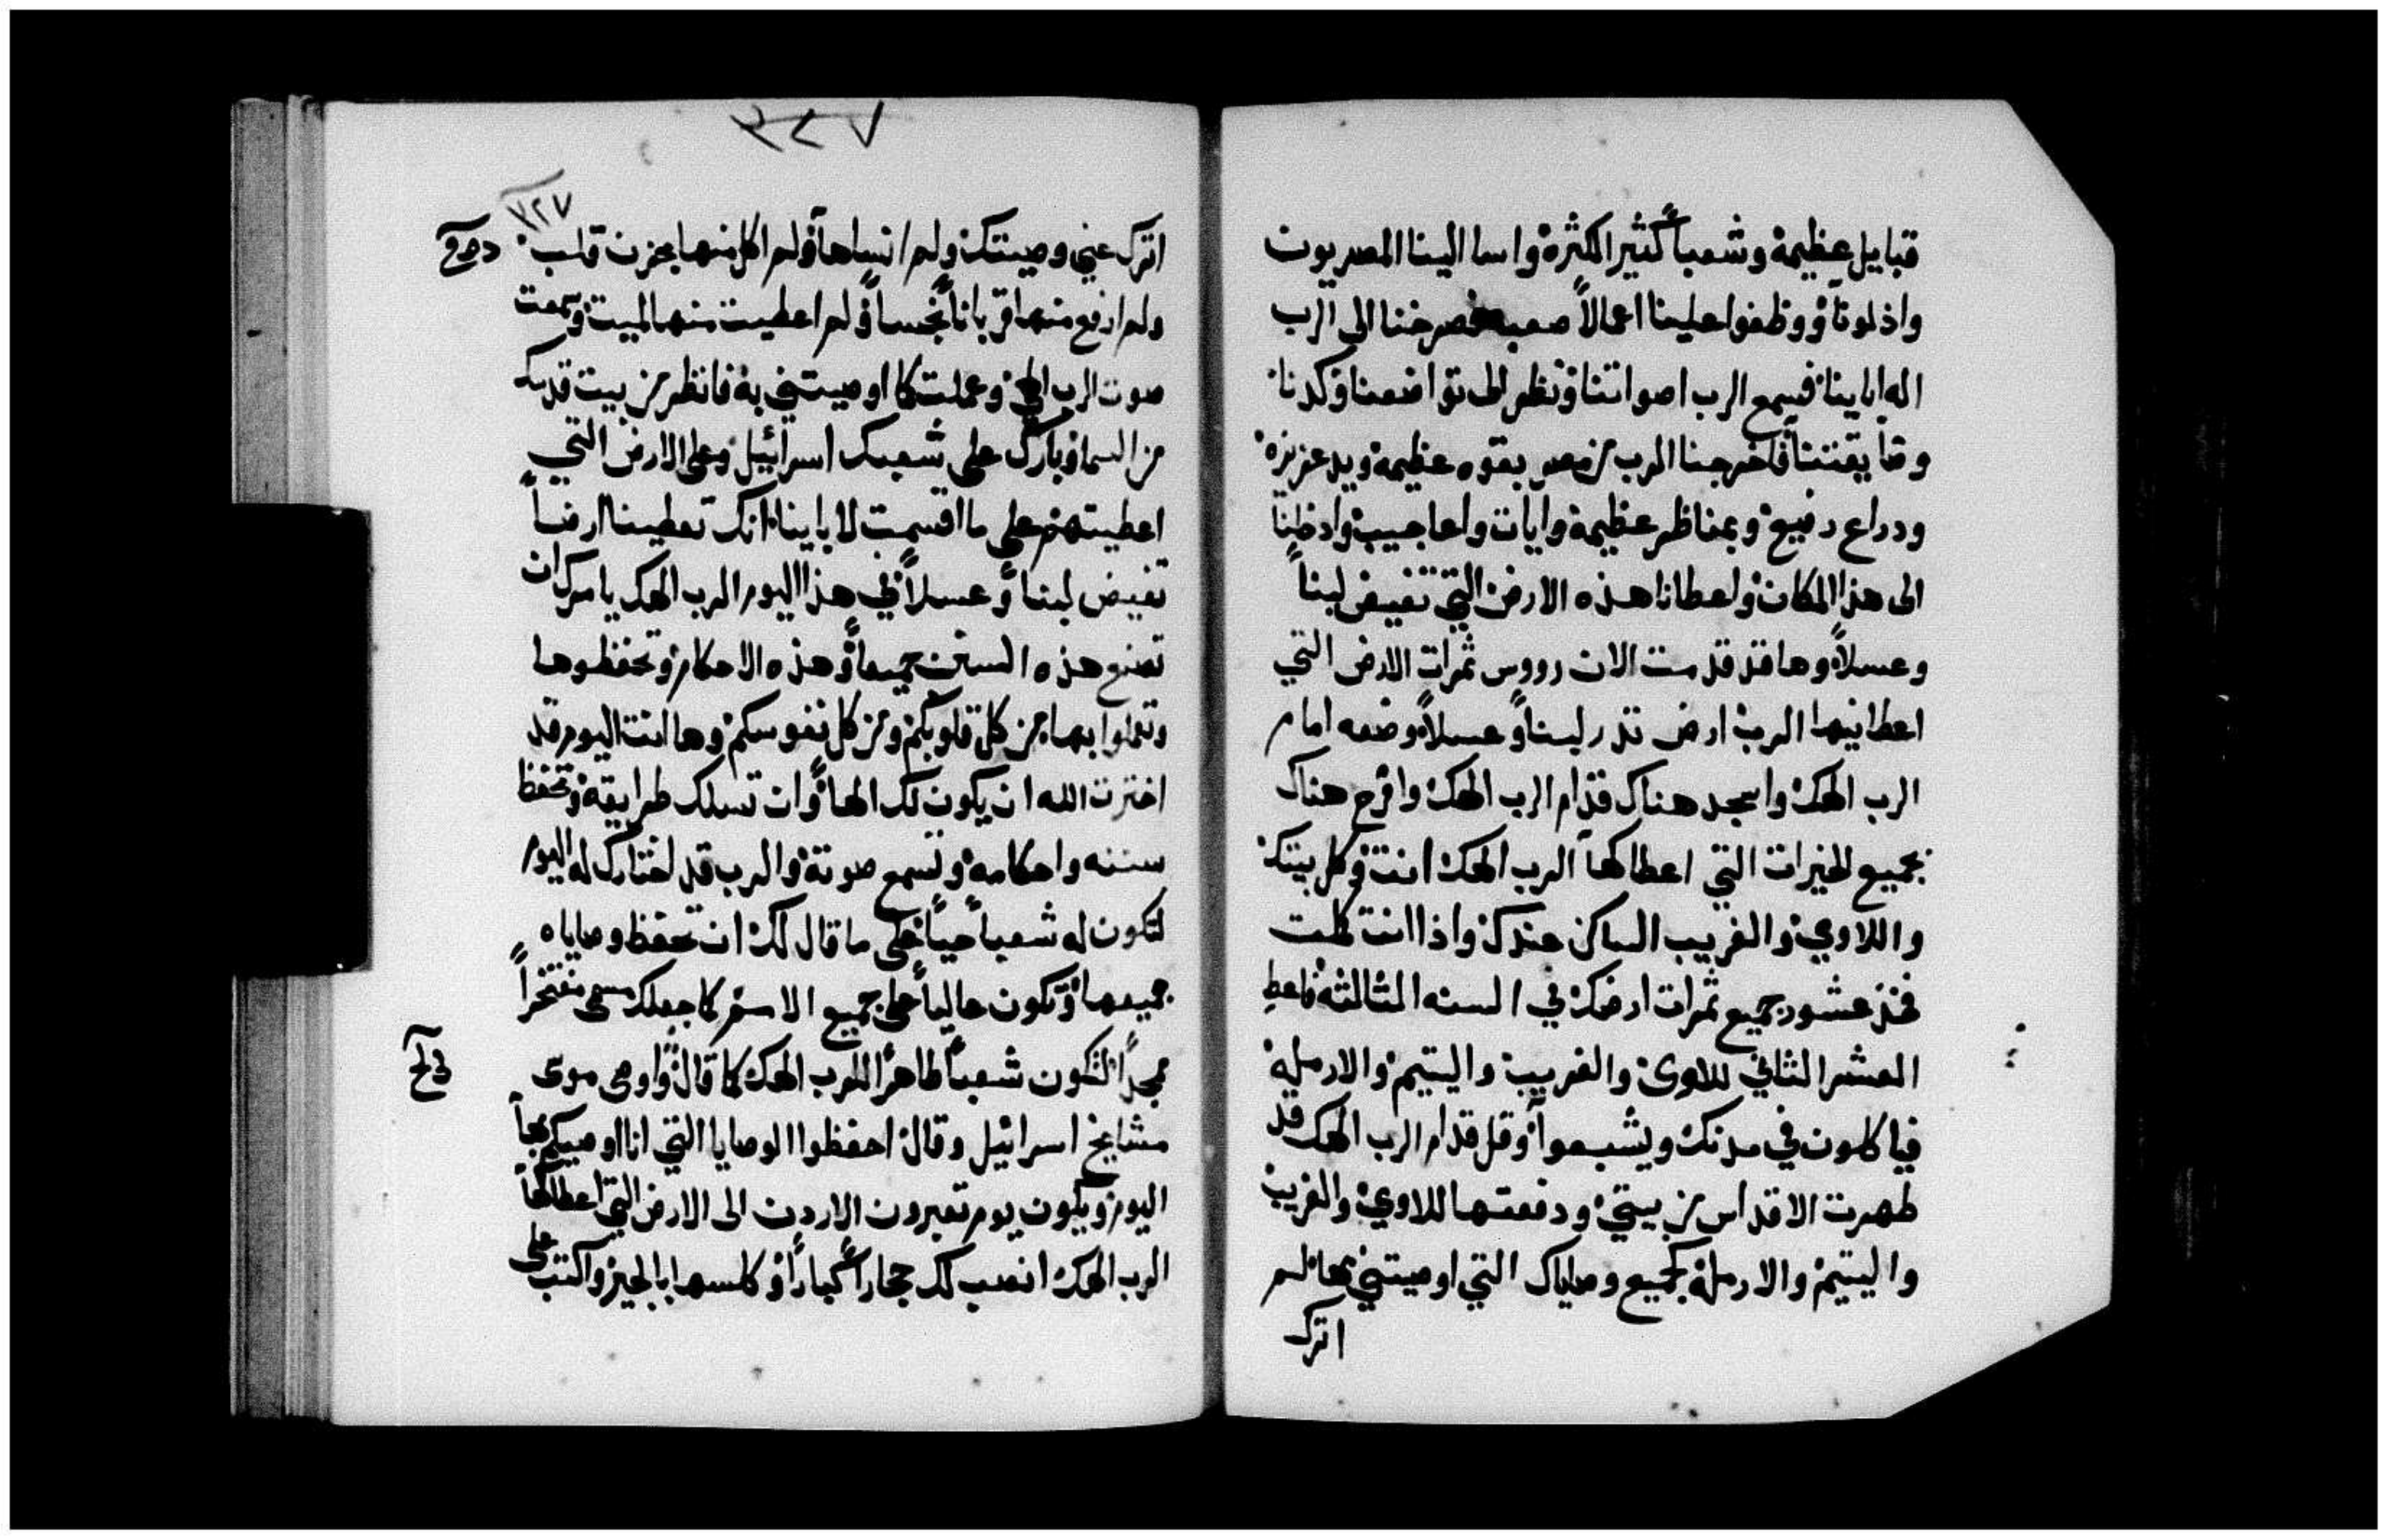 قبايل عظيمة وشعباً كثير الكثرة واسا الينا المصريون
واذلونا ووظفوا علينا اعمالاً صعبه فصرخنا الى الرب
اله اباينا فسمع الرب اصواتنا ونظر الى تواضعنا وكدنا
وضايقتنا فاخرجنا الرب من مصر بقوه عظيمة ويد عزيزه
ودراع رفيع وبمناظر عظيمة وايات واعاجيب وادخلنا
الى هذا المكان واعطانا هذه الارض التي تفيض لبناً
وعسلاً وها قد قدمت الان رووس ثمرات الارض التي
اعطانيها الرب ارض تدر لبناً وعسلاً وضعه امام
الرب الهك واسجد هناك قدام الرب الهك وافرح هناك
بجميع الخيرات التي اعطاكها الرب الهك انت وكل بيتك
واللاوي والغريب الساكن عندك واذا انت كملت
فخذ عشور جميع ثمرات ارضك في السنه الثالثه فاعط
العشر الثاني للاوى والغريب واليتيم والارملة
فياكلون في مدنك ويشبعوا وقل قدام الرب الهك قد
طهرت الاقداس من بيتي ودفعتها للاوي والغريب
واليتيم والارملة كجميع وصاياك التي اوصيتني بها لم
اترك
٢٢٧
اترك عني وصيتك ولم انساها ولم اكل منها بحزن قلب
ولم ارفع منها قرباناً نجساً ولم اعطيت منها لميت وسمعت
صوت الرب الهي وعملت كما اوصيتني به فانظر من بيت قدسك
من السما وبارك على شعبك اسرائيل وعلى الارض التي
اعطيتهم على ما اقسمت لاباينا انك تعطينا ارضاً
تفيض لبناً وعسلاً في هذا اليوم الرب الهك يامرك ان
تصنع هذه السنن جميعاً وهذه الاحكام وتحفظوها
وتعملوا بها من كل قلوبكم ومن كل نفوسكم وها انت اليوم قد
اخترت الله ان يكون لك الهاً وان تسلك طرايقة وتحفظ
سننه واحكامة وتسمع صوتة والرب قد اختارك له اليوم
لتكون له شعباً حياً على ما قال لك ان تحفظ وصاياه
جميعها وتكون عالياً على جميع الامم كما جعلك مسمى مفتخراً
ممجداً لتكون شعباً طاهراً للرب الهك كما قال واوصى موسى
مشايخ اسرائيل وقال احفظوا الوصايا التي انا اوصيكم بها
اليوم ويكون يوم تعبرون الاردن الى الارض التي اعطاكها
الرب الهك انصب لك حجاراً كباراً وكلسها بالجير واكتب على